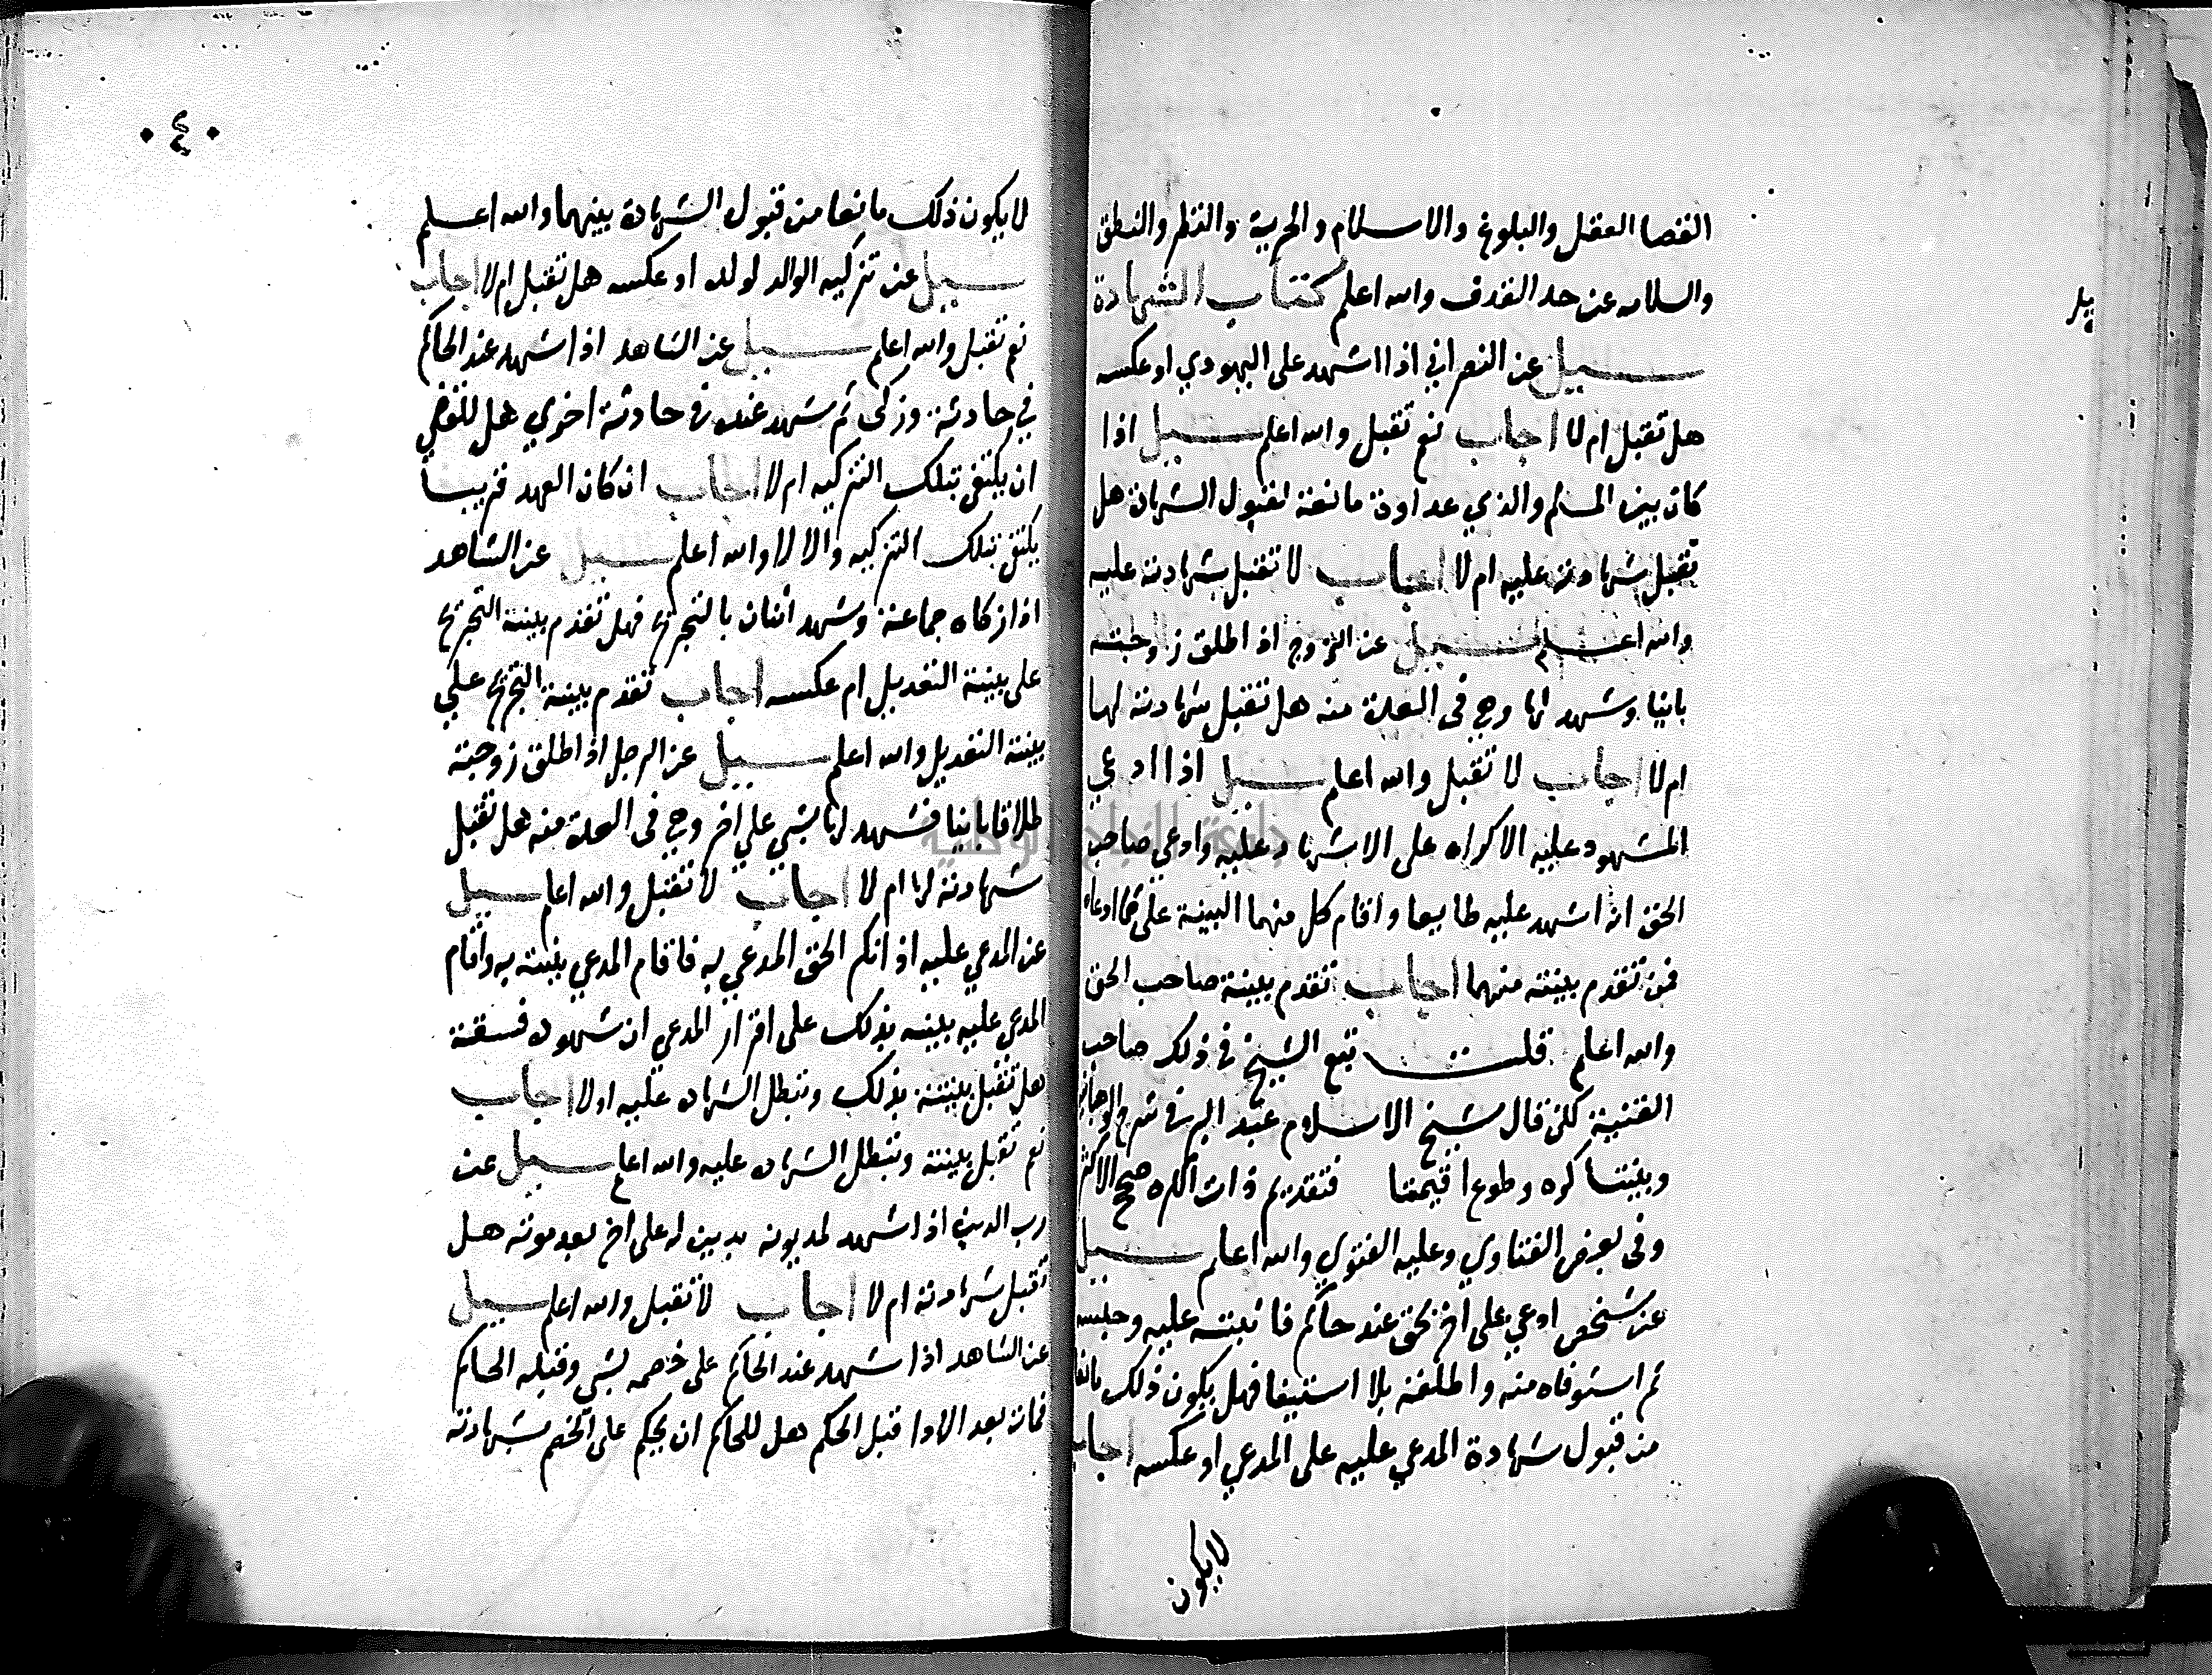 القضا العقل والبلوغ والاسلام والحرية والنظر والنطق
والسلامه عن حد القذف والله اعلم كتاب الشهادة
سيل عن النصراني اذا اشهد على اليهودي او عكسه
هل تقبل ام لا اجاب نعم تقبل والله اعلم سيل اذا
كان بين المسلم والذي عداوة مانعة لقبول الشهادة هل
تقبل شهادته عليه ام لا اجاب لا تقبل شهادته عليه
والله اعلم سيل عن الزوج اذا طلق زوجته
باينا وشهد لها وهي فى العدة منه هل تقبل شهادته لها
ام لا اجاب لا تقبل والله اعلم سيل اذا ادعي
المشهود عليه الاكراه على الاشهاد عليه وادعي صاحب
الحق انه اشهد عليه طايعا واقام كل منهما البينة على ما ادعاه
فمن تقدم بينته منهما اجاب تقدم بينة صاحب الحق
والله اعلم قلت تبع الشيخ في ذلك صاحب
القنية لكن قال شيخ الاسلام عبد البر في شرح الوهبانية
وبينتا كره وطوع اقيمتا فتقديم ذات الكره صحح الاكثر
وفى بعض الفتاوي وعليه الفتوي والله اعلم سيل
عن شخص ادعي على اخر بحق عند حاكم فاثبته عليه وحبسه
ثم استوفاه منه واطلقه بلا استيفا فهل يكون ذلك مانعا
من قبول شهادة المدعي عليه على المدعي او عكسه اجاب
لا يكون
٤٠
لا يكون ذلك مانعا من قبول الشهادة بينهما والله اعلم
سيل عن تزكيه الوالد لولده او عكسه هل تقبل ام لا اجاب
نعم تقبل والله اعلم سيل عن الشاهد اذا شهد عند الحاكم
في حادثة وزكى ثم شهد عنده في حادثة اخري هل للقاضي
ان يكتفي بتلك التزكيه ام لا اجاب ان كان العهد قريبا
يكتفي بتلك التزكيه والا لا والله اعلم سيل عن الشاهد
اذا زكاه جماعة وشهد اثنان بالتجريح فهل تقدم بينة التجريح
على بينة التعديل ام عكسه اجاب تقدم بينة التجريح علي
بينة التعديل والله اعلم سيل عن الرجل اذا طلق زوجته
طلاقا باينا فشهد لها بشي علي اخر وهي فى العدة منه هل تقبل
شهادته لها ام لا اجاب لا تقبل والله اعلم سيل
عن المدعي عليه اذ انكر الحق المدعي به فاقام المدعي بينته به واقام
المدعي عليه بينه بذلك على اقرار المدعي ان شهوده فسقة
هل تقبل بينته بذلك وتبطل الشهاده عليه اولا اجاب
نعم تقبل بينته وتبطل الشهاده عليه والله اعلم سيل عن
رب الدين اذا شهد لمديونه بدين له على اخر بعد موته هل
تقبل شهادته ام لا اجاب لا تقبل والله اعلم سيل
عن الشاهد اذا شهد عند الحاكم على خصمه بشي وقبله الحاكم
فمات بعد الادا قبل الحكم هل للحاكم ان يحكم على الخصم بشهادته